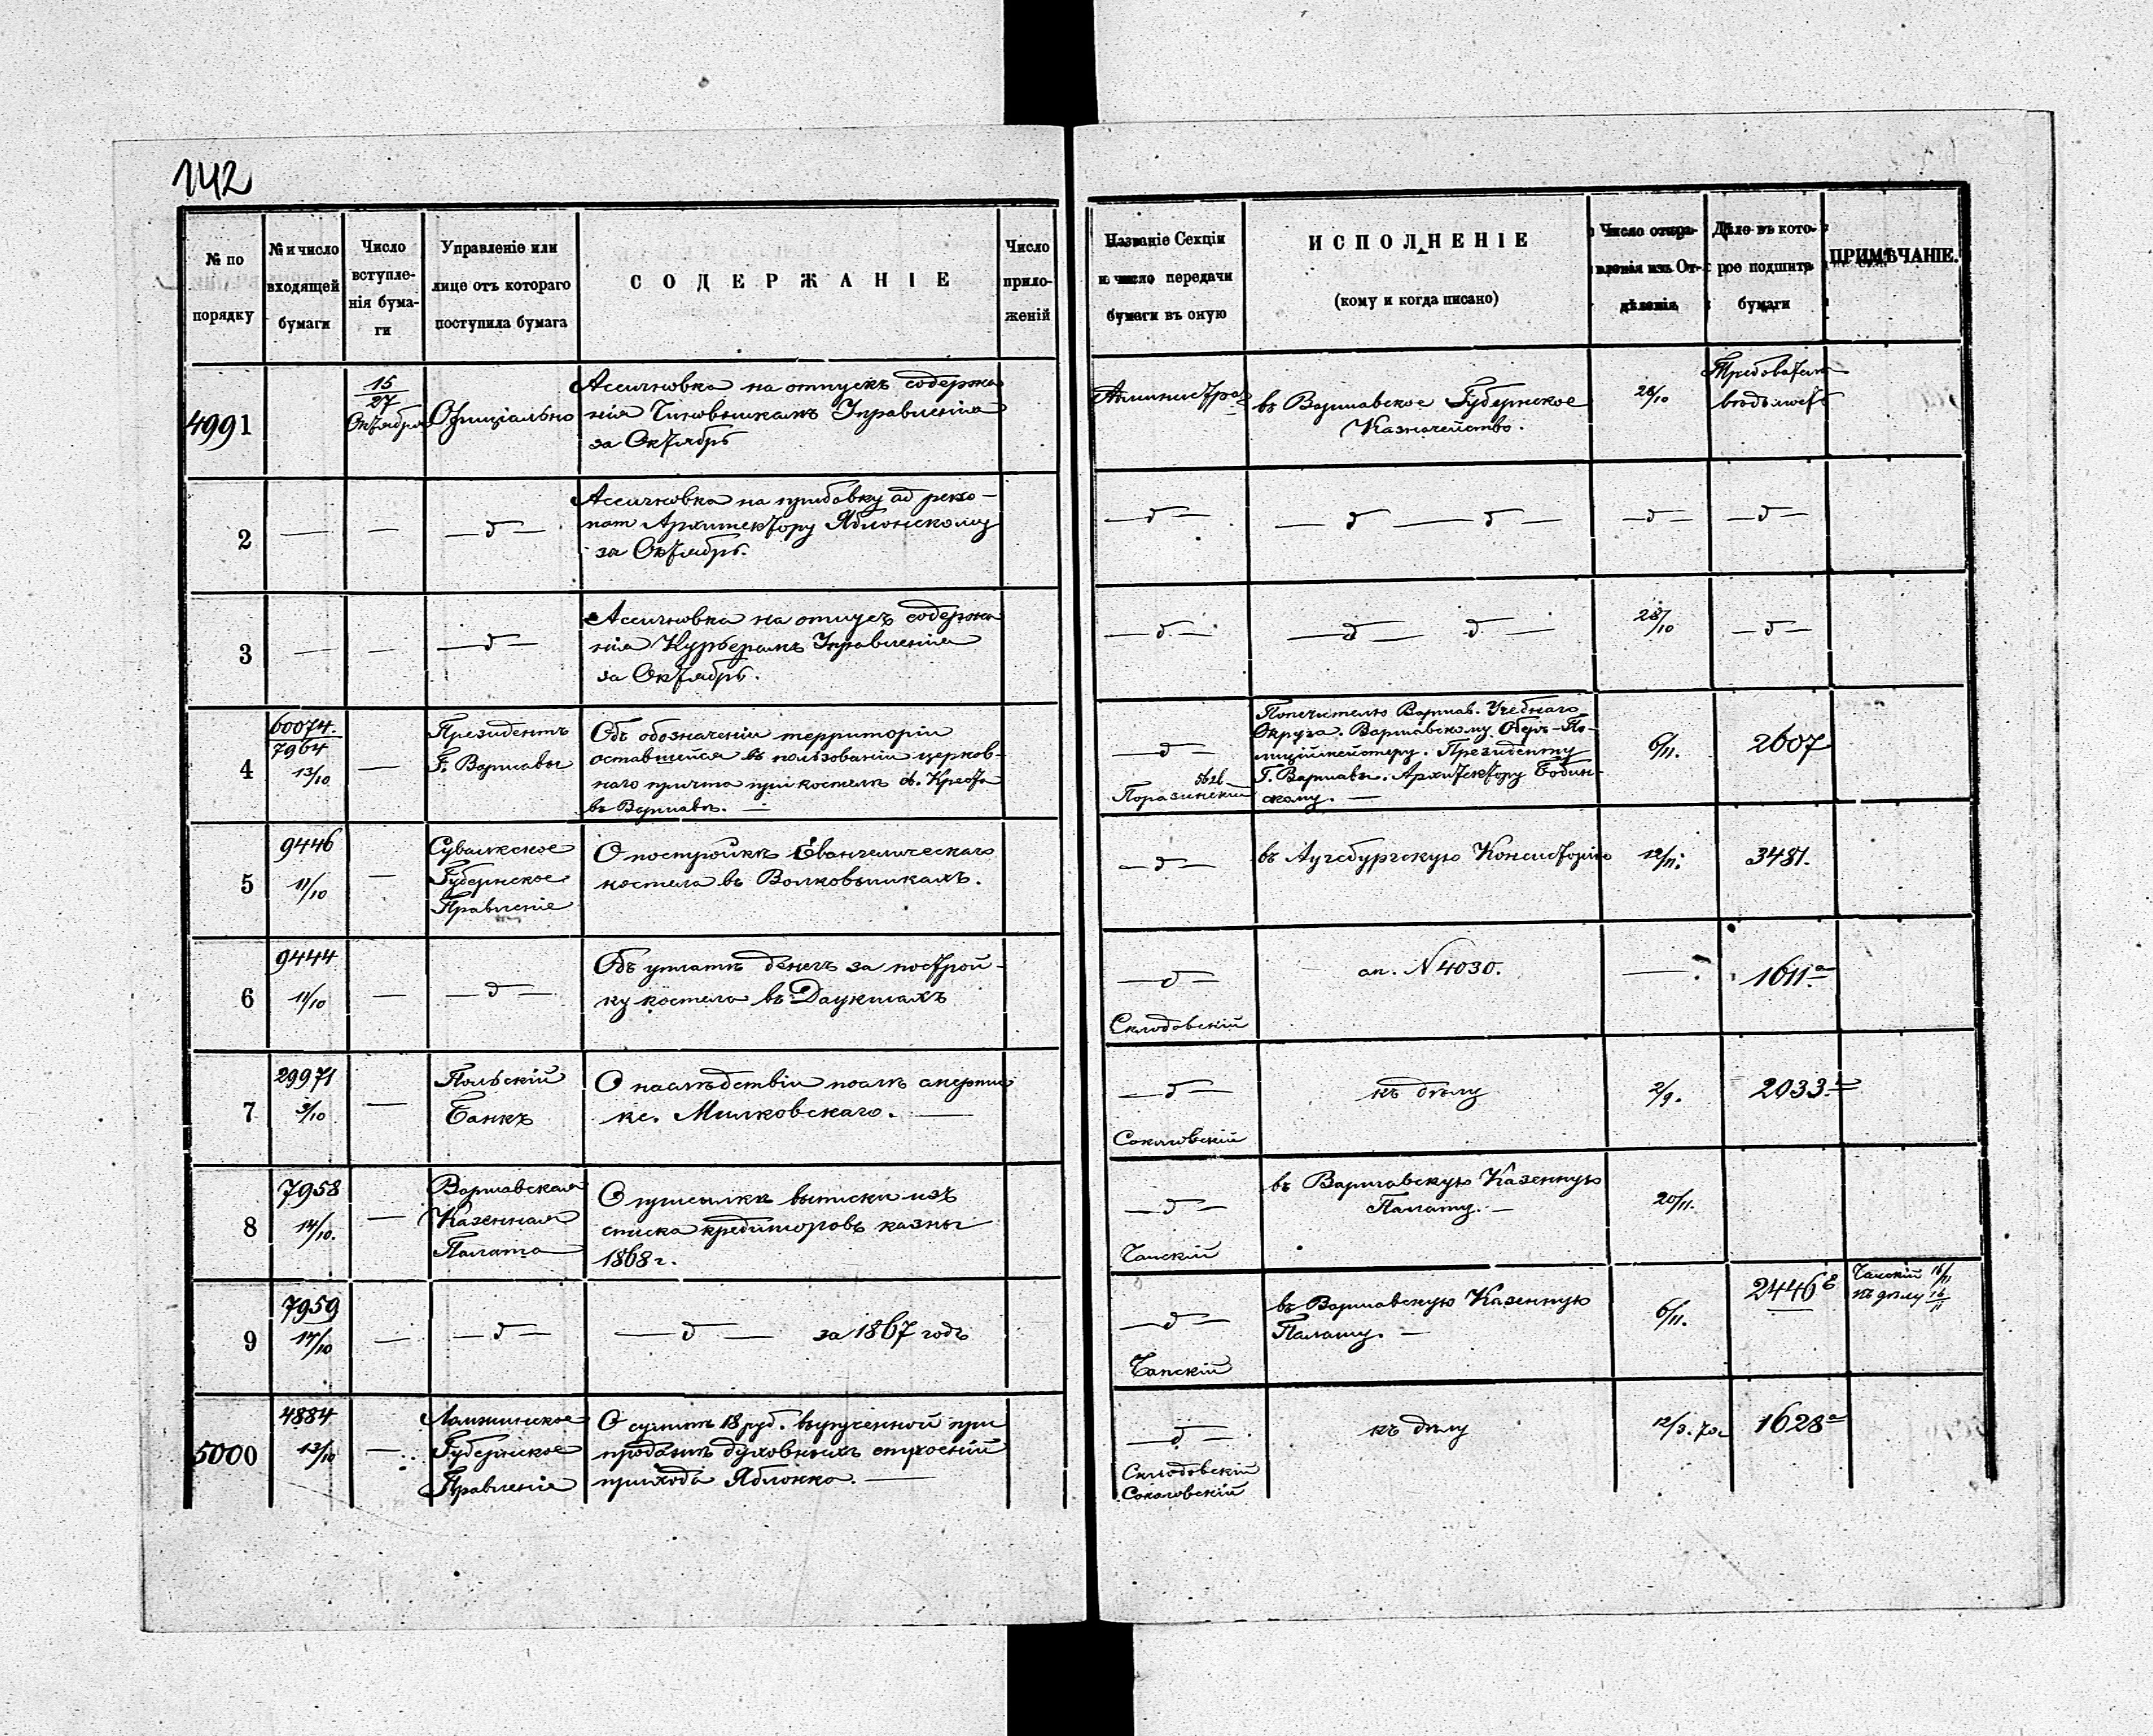 142
№ по порядку
№ и число входящей бумаги
Число вступле-
нія бума-
ги
Управленіе или
лице отъ котораго
поступила бумага
СОДЕРЖАНІЕ
Число
прило-
женій
Названіе Секціи
и число передачи
бумаги въ оную
ИСПОЛНЕНІЕ
(кому и когда писано)
Число отпра-
вленія изъ От-
дѣленія
Дѣло въ кото-
рое подшита
бумаги
ПРИМѢЧАНІЕ.
4991
15/27
Октября
Офиціально
Ассигновка на отпускъ содержа
нія Чиновникамъ Управленія
за Октябрь
въ Варшавское Губернское
Казначейство.
28/10
2
— — —д—
Ассигновка на прибавку ad perso-
nam Архитектору Яблонскому
за Октябрь.
—д— —д— —д— —д— —д—
3
— — —д—
Ассигновка на отпускъ содержа
нія Курьерамъ Управленія
за Октябрь.
—д— —д— —д—
28/10
—д—
4
60074.
7964
13/10
—
Президентъ
Г. Варшавы
Объ обозначеніи территоріи
оставшейся въ пользованіи церков-
наго причта при костелѣ св. Креста
въ Варшавѣ. —
—д—
Поразинскій
Попечителю Варшав. Учебнаго
Округа. Варшавскому Оберъ-По-
лиціймейстеру. Президенту
Г. Варшавы. Архитектору
скому. —
6/11.
2607
5
9446
11/10
—
Сувалкское
Губернское
Правленіе
О постройкѣ Евангелическаго
костела въ Волковышкахъ.
—д—
въ Аугсбургскую Консисторію
12/11.
3481.
6
9444
11/10
— —д—
Объ уплатѣ денегъ за построй-
ку костела въ Даукшахъ
—д—
Склодовскій
ап. N 4030.
—
1611.a
7
29971
9/10
—
Польскій
Банкъ
О наслѣдствіи послѣ смерти
кс. Милковскаго. —
—д—
Соколовскій
къ дѣлу
2/9.
2033.
8
7958
14/10.
—
Варшавская
Казенная
Палата
О присылкѣ выписки изъ
списка кредиторовъ казны
1868 г.
—д—
Чапскій
въ Варшавскую Казенную
Палату. —
20/11.
9
7959
14/10
— —д— —д— за 1867 годъ
—д—
Чапскій
въ Варшавскую Казенную
Палату. —
6/11.
2446
Чапскій 16/11
къ дѣлу 16/11
5000
4884
13/10
—
Ломжинское
Губернское
Правленіе
О суммѣ 18 руб. вырученной при
продажѣ духовныхъ строеній
прихода Яблонка. —
—д—
Склодовскій
Соколовскій
къ дѣлу
1628a